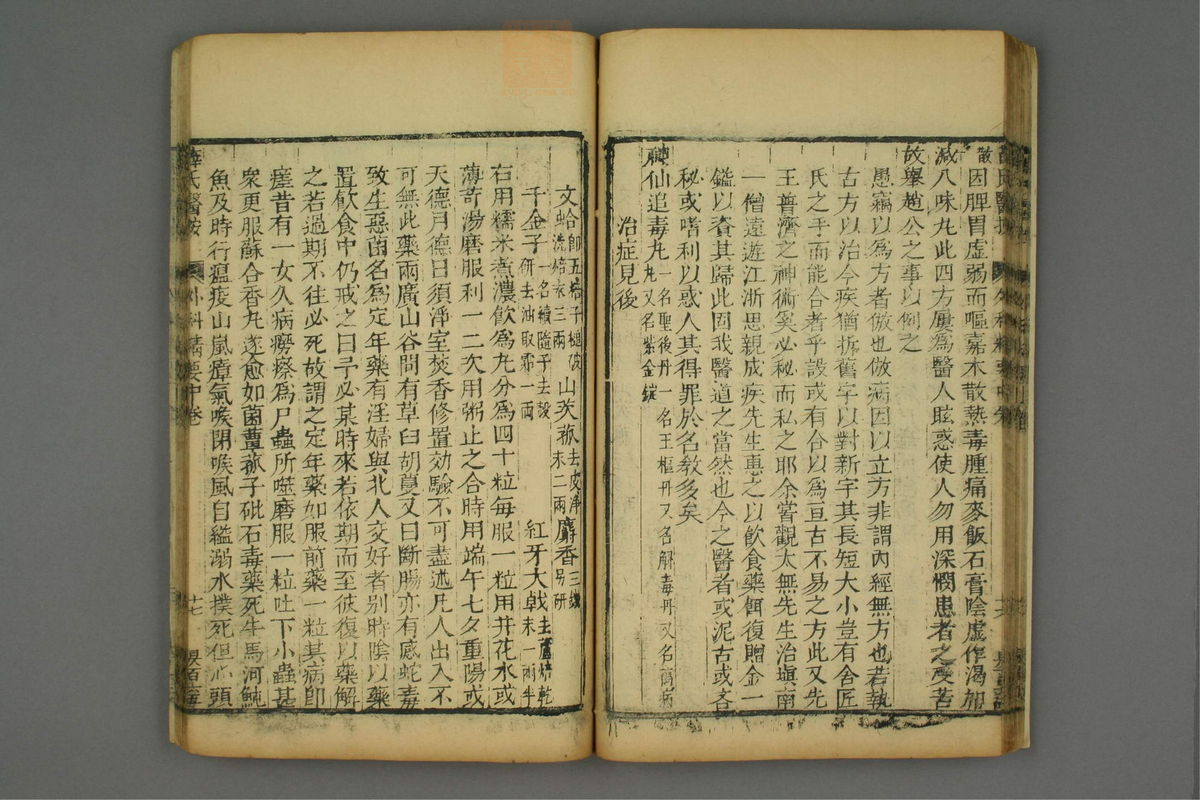 散因脾胃虛弱而嘔嘉禾散熱毒腫痛麥飯石膏陰虛作渴加
減八味丸此四方屢為醫人眩惑使人勿用深憫患者之受苦
故舉趙公之事以例之
愚竊以為方者倣也倣病因以立方非謂內經無方也若執
古方以治今疾猶拆舊宇以對新宇其長短大小豈有舍匠
氏之手而能合者乎設或有合以為亘古不易之方此又先
王普濟之神術奚必秘而私之耶余嘗觀太無先生治滇南
一僧遠遊江浙思親成疾先生惠之以飲食藥餌復贈金一
鎰以資其歸此固我醫道之當然也今之醫者或泥古或吝
秘或嗜利以惑人其得罪於名教多矣
神仙追毒丸一名聖後丹一名玉樞丹又名解毒丹又名萬病丸又名紫金錠
治症見後
文蛤即五棓子搥破洗焙末三兩 山茨菰去皮淨末二兩 麝香三錢另研
千金子一名續隨子去殼研去油取霜一兩 紅牙大戟去蘆焙乾末一兩半
右用糯米煮濃飲為丸分為四十粒每服一粒用井花水或
薄荷湯磨服利一二次用粥止之合時用端午七夕重陽或
天德月德日須淨室焚香修置効驗不可盡述凡人出入不
可無此藥兩廣山谷間有草曰胡蔓又曰斷腸亦有感蛇毒
致生惡菌名為定年藥有淫婦與北人交好者別時陰以藥
置飲食中仍戒之曰子必某時來若依期而至彼復以藥解
之若過期不往必死故謂之定年藥如服前藥一粒其病即
痊昔有一女久病癆瘵為尸蟲所噬磨服一粒吐下小蟲甚
衆更服蘇合香丸遂愈如菌蕈菰子砒石毒藥死牛馬河魨
魚及時行瘟疫山嵐瘴氣喉閉喉風自縊溺水撲死但心頭
薛氏醫按 外科精要中卷 十七